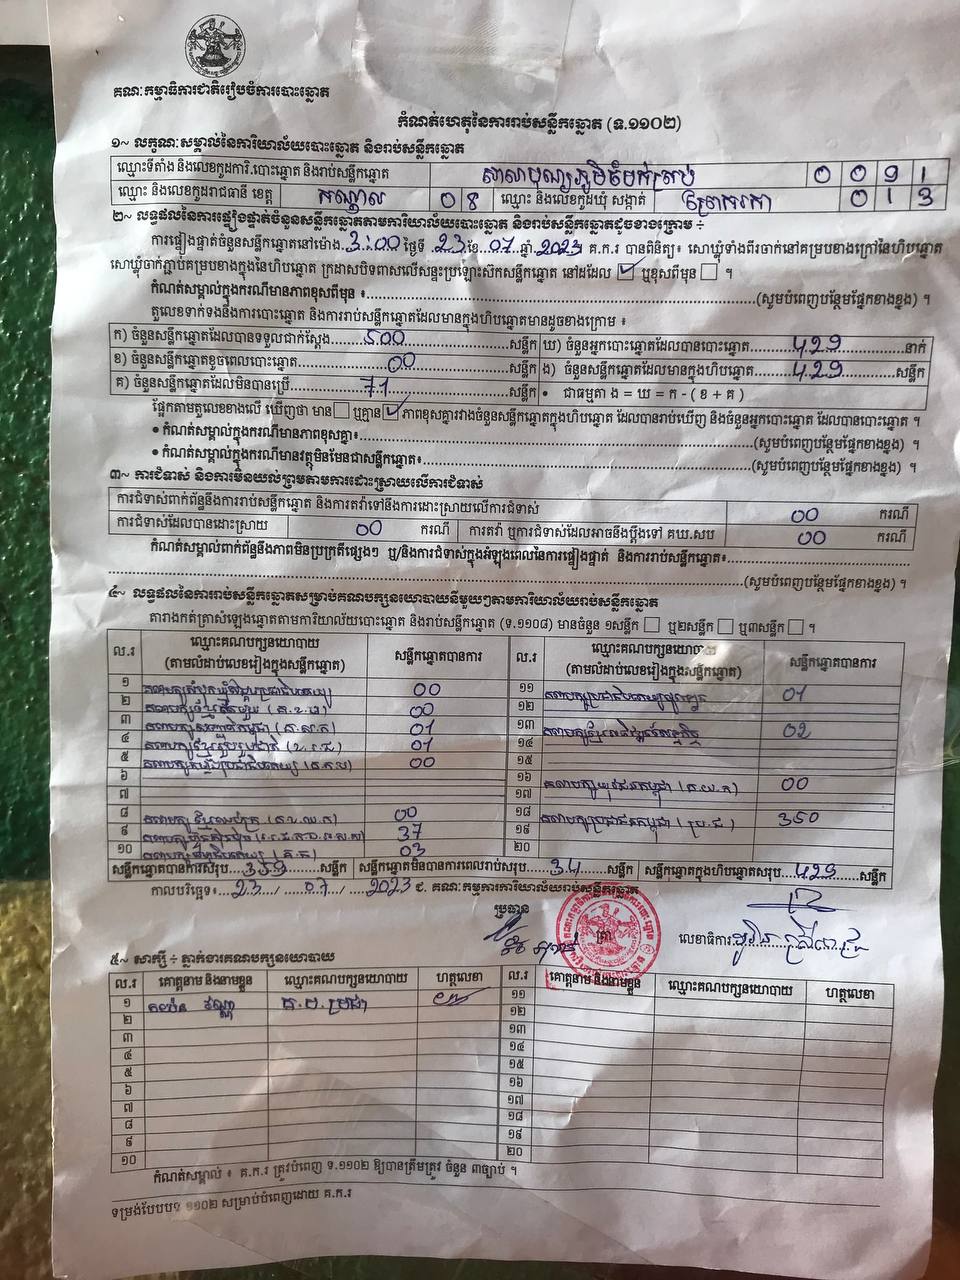 គណៈកម្មាធិការជាតិរៀបចំការបោះឆ្នោត
កំណត់ហេតុនៃការរាប់សន្លឹកឆ្នោត (ទ.១១០២)
១~ លក្ខណៈសម្គាល់នៃការិយាល័យបោះឆ្នោត និងរាប់សន្លឹកឆ្នោត
ឈ្មោះទីតាំង និងលេខកូដការិ.បោះឆ្នោត និងរាប់សន្លឹកឆ្នោត 0 0 9 1
ឈ្មោះ និងលេខកូដរាជធានី ខេត្ត កណ្តាល 0 8 ឈ្មោះ និងលេខកូដឃុំ សង្កាត់ 0 1 3
២~ លទ្ធផលនៃការផ្ទៀងផ្ទាត់ចំនួនសន្លឹកឆ្នោតតាមការិយាល័យបោះឆ្នោត និងរាប់សន្លឹកឆ្នោតដូចខាងក្រោម ÷
ការផ្ទៀងផ្ទាត់ចំនួនសន្លឹកឆ្នោតនៅម៉ោង 3:00 ថ្ងៃទី 23 ខែ 07 ឆ្នាំ 2023 គ.ក.រ បានពិនិត្យ៖ សោឃ្លុំទាំងពីរចាក់នៅគម្របខាងក្រៅនៃហិបឆ្នោត
សោឃ្លុំចាក់ភ្ជាប់គម្របខាងក្នុងនៃហិបឆ្នោត ក្រដាសបិទពាសលើសន្ទះប្រឡោះសឹកសន្លឹកឆ្នោត នៅដដែល ☑ ឬខុសពីមុន ☐ ។
កំណត់សម្គាល់ក្នុងករណីមានភាពខុសពីមុន ៖ (សូមបំពេញបន្ថែមផ្នែកខាងខ្នង) ។
តួលេខទាក់ទងនឹងការបោះឆ្នោត និងការរាប់សន្លឹកឆ្នោតដែលមានក្នុងហិបឆ្នោតមានដូចខាងក្រោម ៖
ក) ចំនួនសន្លឹកឆ្នោតដែលបានទទួលជាក់ស្តែង 500 សន្លឹក ឃ) ចំនួនអ្នកបោះឆ្នោតដែលបានបោះឆ្នោត 429 នាក់
ខ) ចំនួនសន្លឹកឆ្នោតខូចពេលបោះឆ្នោត 00 សន្លឹក ង) ចំនួនសន្លឹកឆ្នោតដែលមានក្នុងហិបឆ្នោត 429 សន្លឹក
គ) ចំនួនសន្លឹកឆ្នោតដែលមិនបានប្រើ 71 សន្លឹក • ជាធម្មតា ង = ឃ = ក - ( ខ + គ )
ផ្អែកតាមតួលេខខាងលើ ឃើញថា មាន ☐ ឬគ្មាន ☑ ភាពខុសគ្នារវាងចំនួនសន្លឹកឆ្នោតក្នុងហិបឆ្នោត ដែលបានរាប់ឃើញ និងចំនួនអ្នកបោះឆ្នោតដែលបានបោះឆ្នោត ។
• កំណត់សម្គាល់ក្នុងករណីមានភាពខុសគ្នា៖ (សូមបំពេញបន្ថែមផ្នែកខាងខ្នង) ។
• កំណត់សម្គាល់ក្នុងករណីមានវត្ថុមិនមែនជាសន្លឹកឆ្នោត៖ (សូមបំពេញបន្ថែមផ្នែកខាងខ្នង) ។
៣~ ការជំទាស់ និងការមិនយល់ព្រមតាមការដោះស្រាយលើការជំទាស់
ការជំទាស់ពាក់ព័ន្ធនឹងការរាប់សន្លឹកឆ្នោត និងការតវ៉ាទៅនឹងការដោះស្រាយលើការជំទាស់ 00 ករណី
ការជំទាស់ដែលបានដោះស្រាយ 00 ករណី ការតវ៉ា ឬការជំទាស់ដែលអាចនឹងប្តឹងទៅ គឃ.សប 00 ករណី
កំណត់សម្គាល់ពាក់ព័ន្ធនឹងភាពមិនប្រក្រតីផ្សេងៗ ឬ/និងការជំទាស់ក្នុងអំឡុងពេលនៃការផ្ទៀងផ្ទាត់ និងការរាប់សន្លឹកឆ្នោត៖
(សូមបំពេញបន្ថែមផ្នែកខាងខ្នង) ។
៤~ លទ្ធផលនៃការរាប់សន្លឹកឆ្នោតសម្រាប់គណបក្សនយោបាយនីមួយៗតាមការិយាល័យរាប់សន្លឹកឆ្នោត
តារាងកត់ត្រាសំឡេងឆ្នោតតាមការិយាល័យបោះឆ្នោត និងរាប់សន្លឹកឆ្នោត (ទ.១១០៨) មានចំនួន ១សន្លឹក ☐ ឬ២សន្លឹក ☐ ឬ៣សន្លឹក ☐ ។
ល.រ ឈ្មោះគណបក្សនយោបាយ (តាមលំដាប់លេខរៀងក្នុងសន្លឹកឆ្នោត) សន្លឹកឆ្នោតបានការ ល.រ ឈ្មោះគណបក្សនយោបាយ (តាមលំដាប់លេខរៀងក្នុងសន្លឹកឆ្នោត) សន្លឹកឆ្នោតបានការ
១ 00 ១១ 01
២ 00 ១២
៣ 01 ១៣ 02
៤ 01 ១៤
៥ 00 ១៥
៦ ១៦ 00
៧ ១៧
៨ 00 ១៨ គណបក្សប្រជាជនកម្ពុជា 350
៩ 37 ១៩
១០ 03 ២០
សន្លឹកឆ្នោតបានការសរុប សន្លឹក សន្លឹកឆ្នោតមិនបានការពេលរាប់សរុប 34 សន្លឹក សន្លឹកឆ្នោតក្នុងហិបឆ្នោតសរុប 429 សន្លឹក
កាលបរិច្ឆេទ៖ 23 / 07 / 2023 ជ. គណៈកម្មការការិយាល័យរាប់សន្លឹកឆ្នោត
ប្រធាន ត្រា លេខាធិការ
៥~ សាក្សី ÷ ភ្នាក់ងារគណបក្សនយោបាយ
ល.រ គោត្តនាម និងនាមខ្លួន ឈ្មោះគណបក្សនយោបាយ ហត្ថលេខា ល.រ គោត្តនាម និងនាមខ្លួន ឈ្មោះគណបក្សនយោបាយ ហត្ថលេខា
១ ១១
២ ១២
៣ ១៣
៤ ១៤
៥ ១៥
៦ ១៦
៧ ១៧
៨ ១៨
៩ ១៩
១០ ២០
កំណត់សម្គាល់ ៖ គ.ក.រ ត្រូវបំពេញ ទ.១១០២ ឱ្យបានត្រឹមត្រូវ ចំនួន ៣ច្បាប់ ។
ទម្រង់បែបបទ ១១០២ សម្រាប់បំពេញដោយ គ.ក.រ